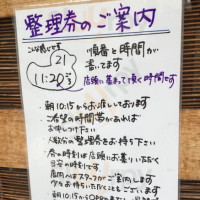 整理券のご案内
こんな感じです
21
11:20〜
順番と時間が
書いてます
店頭に集まって頂く時間です
・朝10:15からお渡ししております
・ご希望の時間帯があれば
お申しつけ下さい
・人数分の整理券をお待ち下さい
・券の時刻は店頭にお集りいただく
目安の時刻です
店内へはスタッフがご案内します
少々お待ちいただくこともございます
・朝10:15から